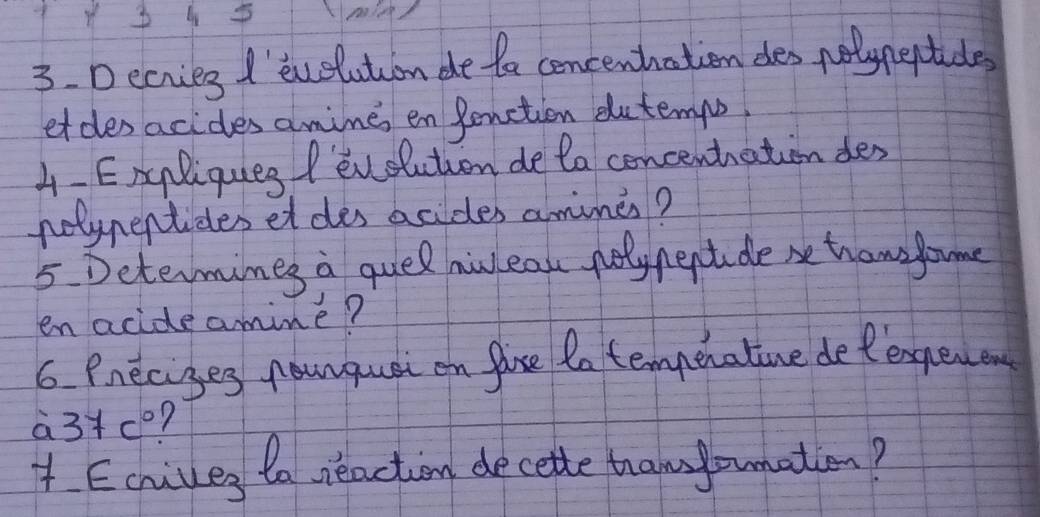 3 4 5 (min)
3-Decriez l'évolution de la concentration des polypeptides
et des acides aminés en fonction du temps.
4-Expliquez l'évolution de la concentration des
polypeptides et des acides aminés?
5-Determinez à quel niveau polypeptide se transforme
en acide aminé?
6-Précizez pourquoi on fixe la température de l'experient
à 37 c°?
7-Ecrivez la réaction de cette transformation?